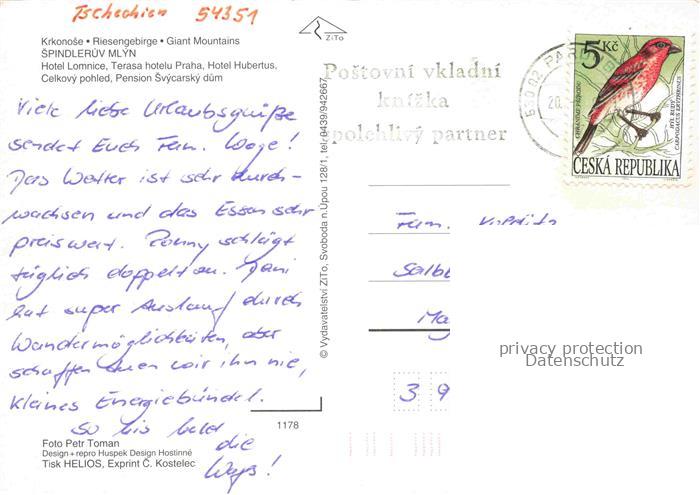 Tschechien 54351
Krkonoše • Riesengebirge • Giant Mountains
ŠPINDLERŮV MLÝN
Hotel Lomnice, Terasa hotelu Praha, Hotel Hubertus,
Celkový pohled, Pension Švýcarský dům
Viele liebe Urlaubsgrüße
sendet Euch Fam. Woge!
Das Wetter ist sehr durch-
wachsen und das Essen sehr
preiswert. Ronny schlägt
täglich doppelt an. Dani
hat super Auslauf durch
Wandermöglichkeiten, aber
schaffen tuen wir ihn nie,
kleines Energiebündel.
So bis bald
die
1178
Foto Petr Toman
Design + repro Huspek Design Hostinné
Tisk HELIOS, Exprint Č. Kostelec
ZiTo
© Vydavatelství ZiTo, Svoboda n.Úpou 128/1, tel. 0439/942667
Poštovní vkladní
knížka
spolehlivý partner
530 02 PAR
20.
5 Kč
OCHRANA PŘÍRODY
HÝL RUDÝ
CARPODACUS ERYTHRINUS
ČESKÁ REPUBLIKA
Fam.
Salb
Mag
3 9
privacy protection
Datenschutz